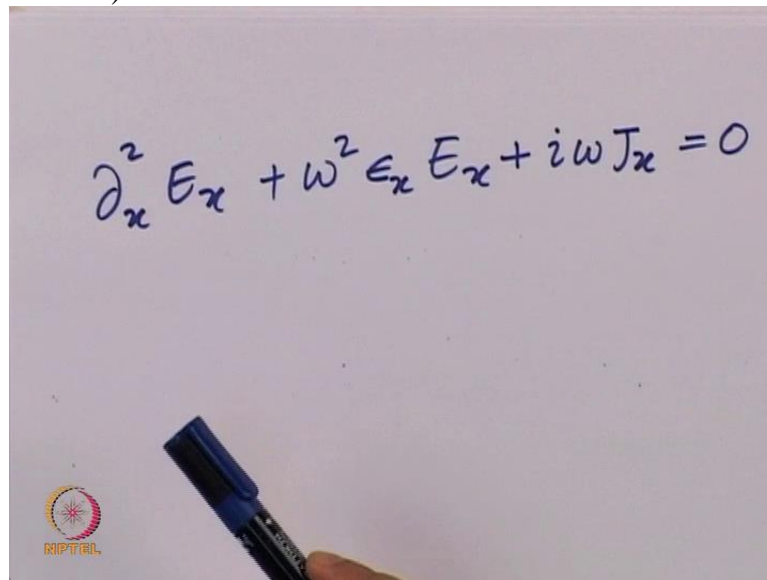 ∂ₓ² Eₓ + ω² ϵₓ Eₓ + iω Jₓ = 0
NPTEL